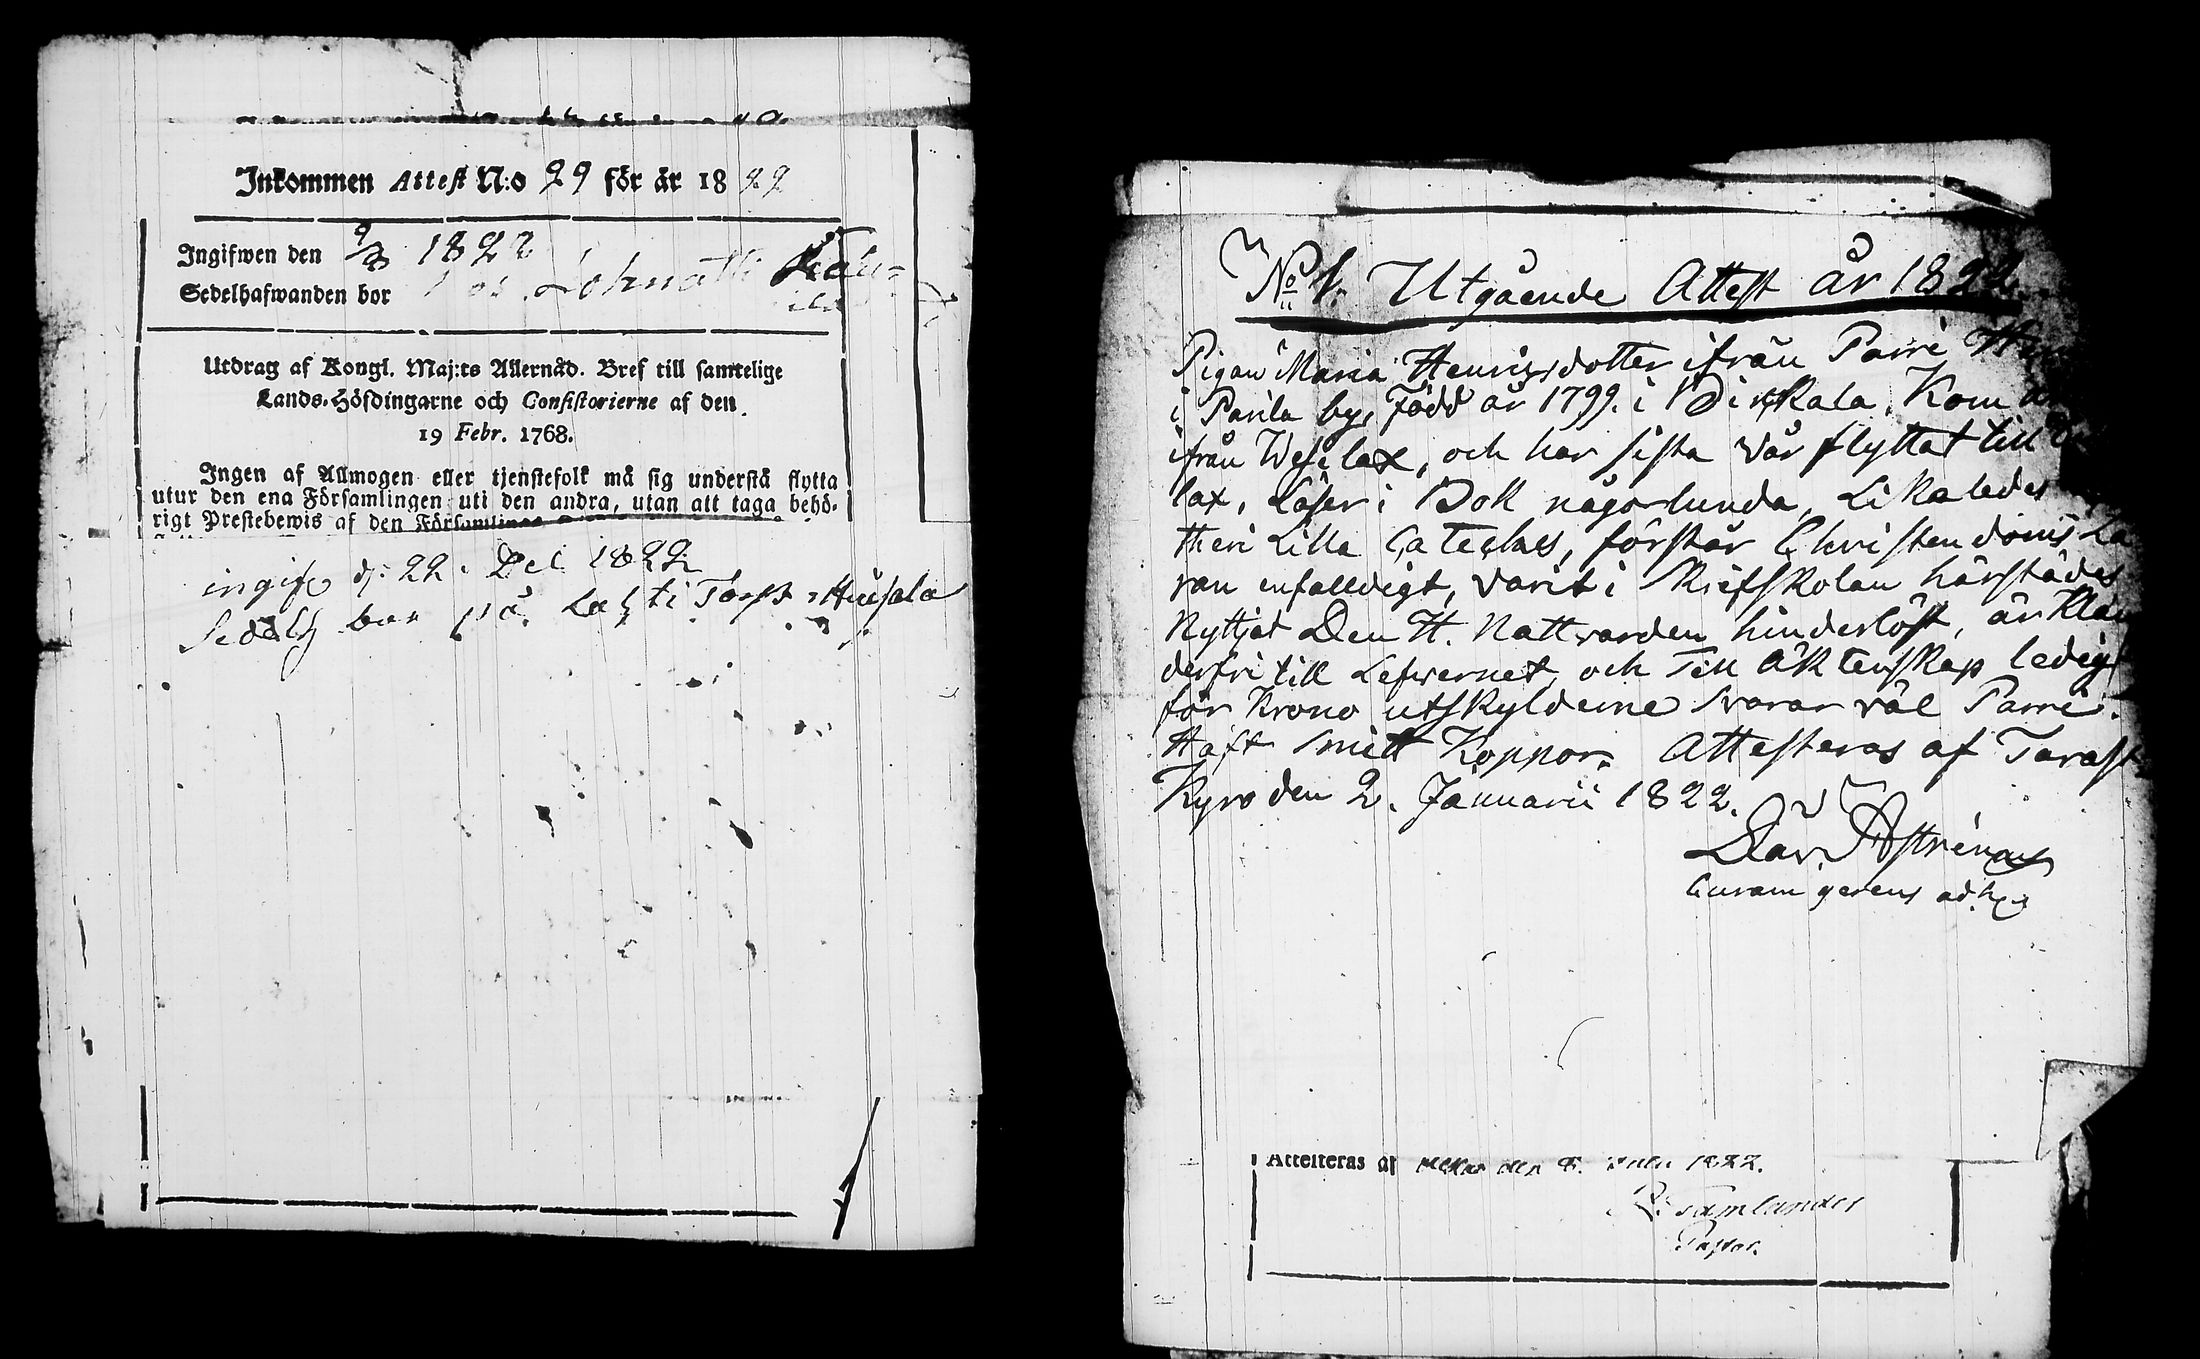 Inkommen Attest N:o 29 för år 1822
Ingifwen den 9/8 1822
Sedelhafwanden bor hos Lohnatti
Utdrag af Kongl. Maj:ts Allernåd. Bref till samtelige
Lands-Höfdingarne och Consistorierne af den
19 Febr. 1768.
Ingen af Allmogen eller tjenstefolk må sig understå flytta
utur den ena Församlingen uti den andra, utan att taga behö-
rigt Prestebewis af den
ingifv d: 22. Dec 1822
bor på Lahti Torp
No 1. Utgående Attest år 1822.
Pigan Maria Henricsdotter ifrån Parri
i Parila by, Född år 1799. i Birkkala, Kom
ifrån Wesilax, och har sista vår flyttat till
lax, Läser i Bok någorlunda, Likaledes
theri Lilla Cateches, förstår Christendoms
ran enfalldigt, varit i Skrifskolan härstädes
Nyttjat Den H. Nattvarden hinderlöst, är Klan
derfri till Lefvernet, och Till Äktenskap ledig
för Krono utskylderne svarar väl Parri.
Haft smitt Koppor. Attesteras af Tavast
Kyro den 2. Januarii 1822.
Dav. Astrenius
Curam gerens ad. h.
Attesteras af den 8. 1822.
Tamlander
Pastor.